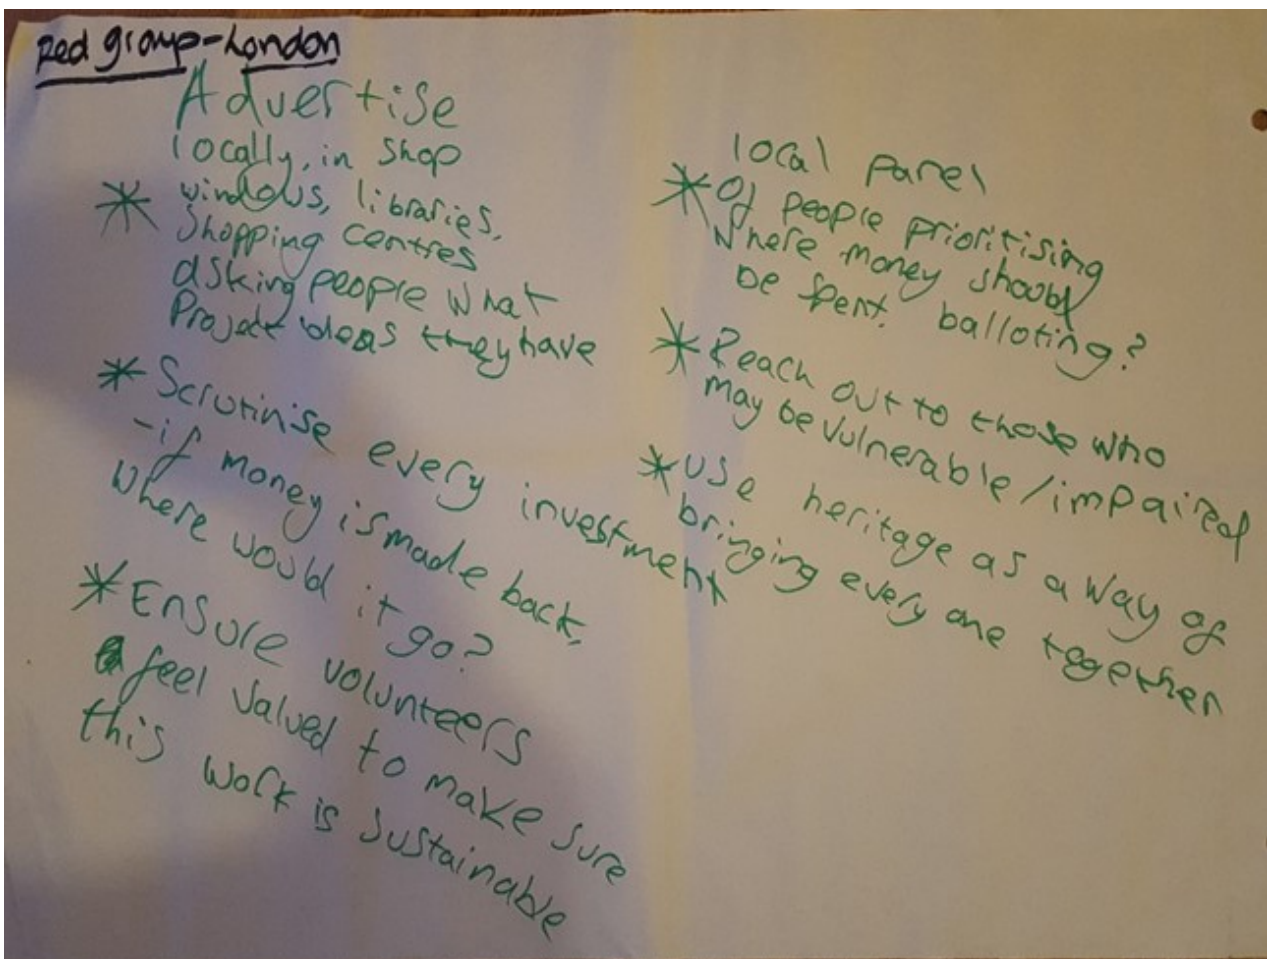 Red group - London
Advertise
locally, in shop
* windows, libraries,
shopping centres
asking people what
Project ideas they have
* Scrutinise every investment
- if money is made back,
where would it go?
* Ensure volunteers
feel valued to make sure
this work is sustainable
local panel
* Of people prioritising
where money should
be spent. balloting?
* Reach out to those who
may be vulnerable/impaired
* use heritage as a way of
bringing every one together